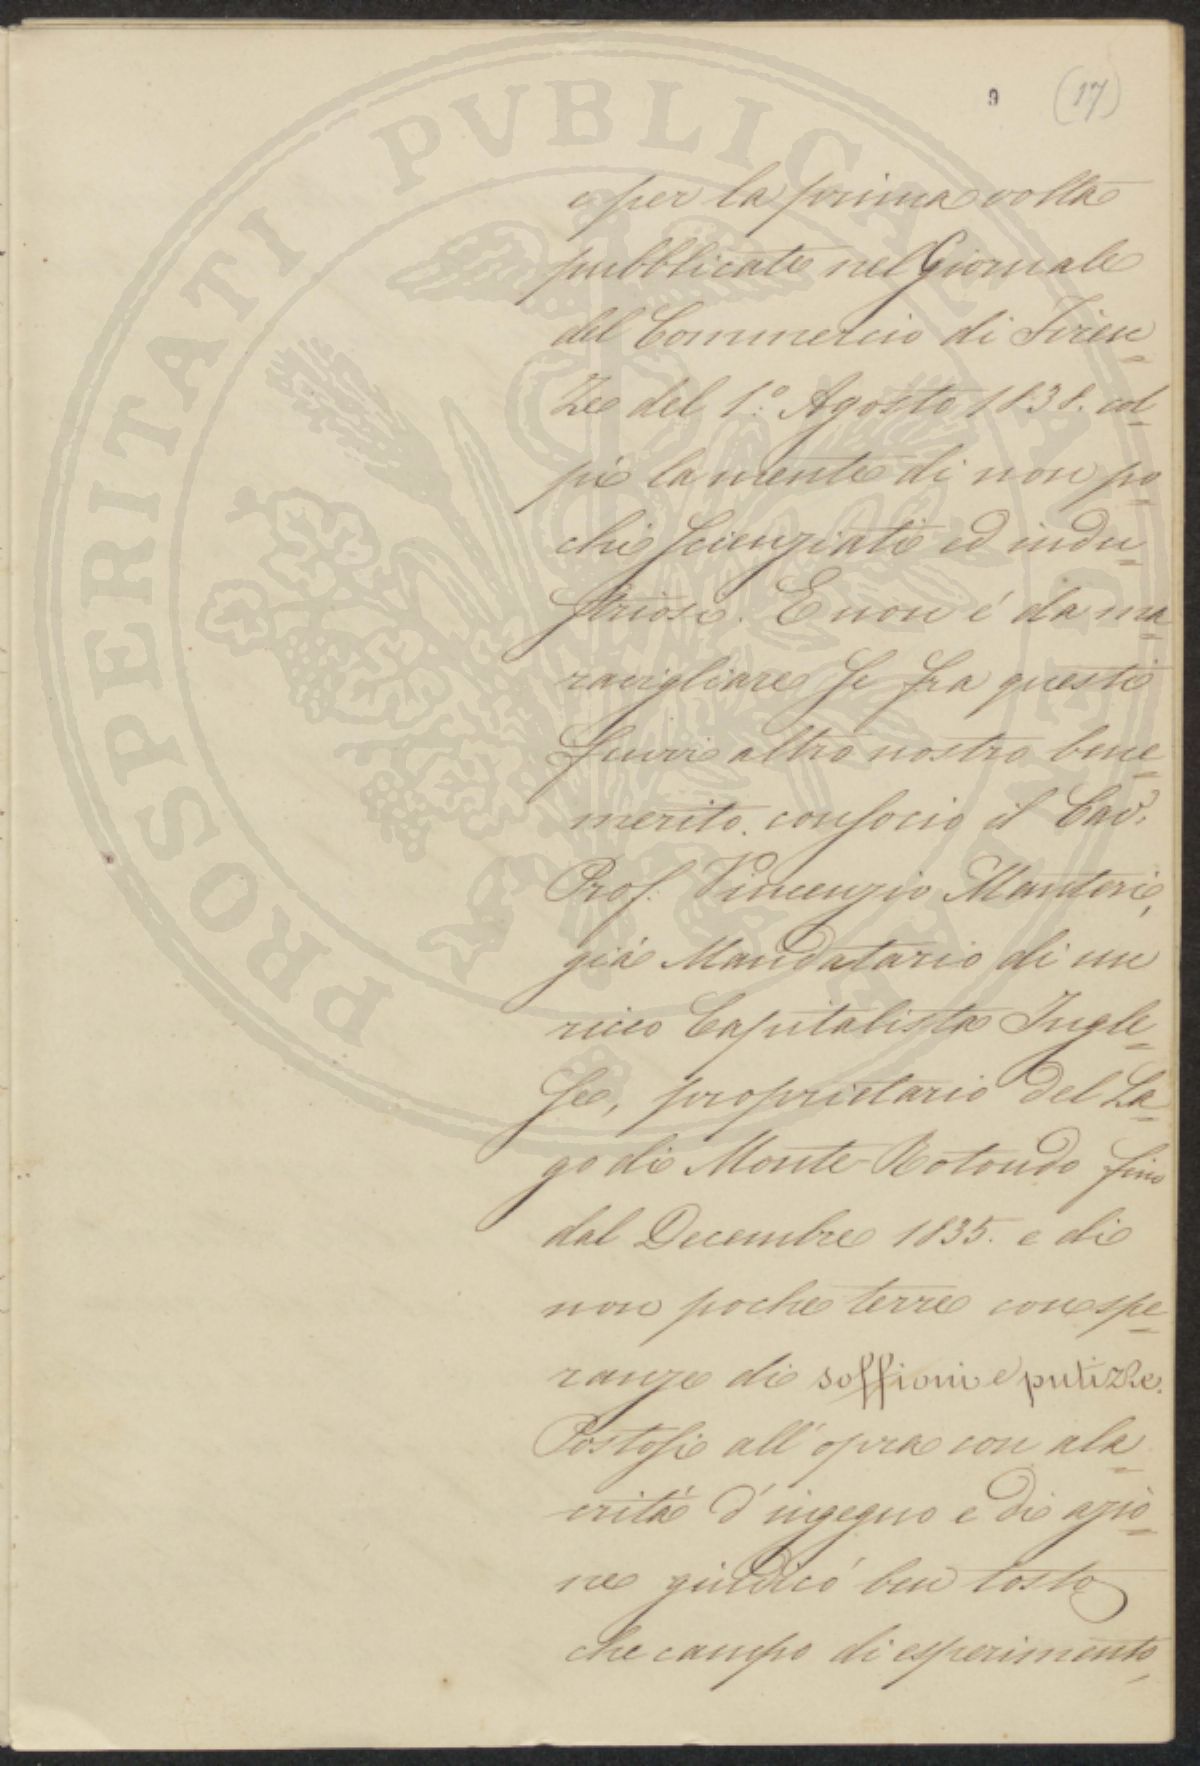 9 (17)
e per la prima volta
pubblicate nel Giornale
del Commercio di Firen=
Ze del 1.º Agosto 1838. col=
pi la mente di non po=
chi scienziati ed indu=
striosi. E non é da ma=
ravigliare se fra questi
siavi altro nostro bene=
merito. consocio il Cav.
Prof. Vincenzio Manteri,
giá Mandatario di un
ricco Capitalista Ingle=
se, proprietario del La=
go di Monte-Rotondo fino
dal Decembre 1835. e di
non poche terre con spe=
ranze di soffioni e putizze.
Postosi all'opra con ala=
critá d'ingegno e di azio=
ne giudicó ben tosto
che campo di esperimento,
PROSPERITATI PVBLICAE AVGENDAE